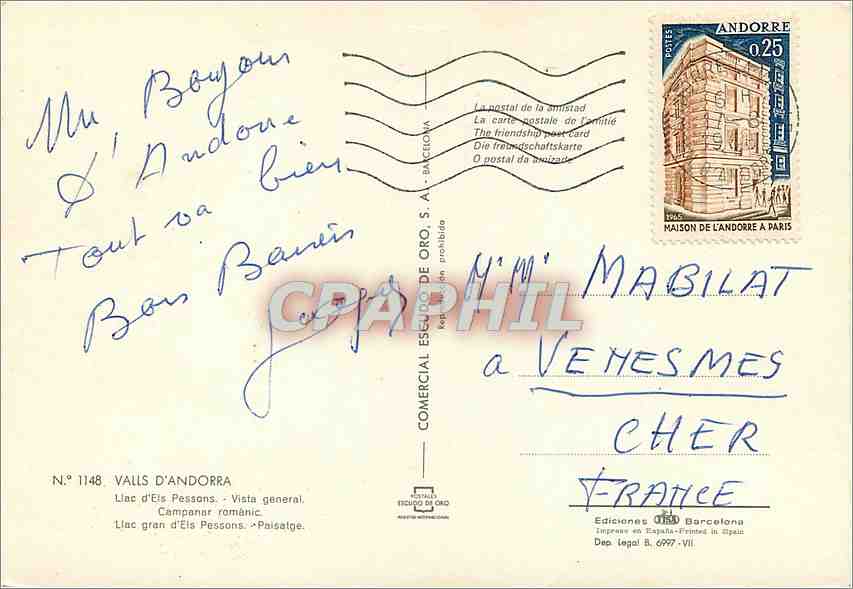 Un Bonjour
d'Andorre
Tout va bien
Bons Baisers
La postal de la amistad
La carte postale de l'amitié
The friendship post card
Die freundschaftskarte
O postal da amizade
POSTES
ANDORRE
0.25
1965
MAISON DE L'ANDORRE A PARIS
COMERCIAL ESCUDO DE ORO, S. A. - BARCELONA
Reproducción prohibida
CPAPHIL
Mr Mme MABILAT
a VENESMES
CHER
FRANCE
N.º 1148. VALLS D'ANDORRA
Llac d'Els Pessons. - Vista general.
Campanar romànic.
Llac gran d'Els Pessons. - Paisatge.
POSTALES
ESCUDO DE ORO
Ediciones FISA Barcelona
Impreso en España-Printed in Spain
Dep. Legal B. 6997-VII